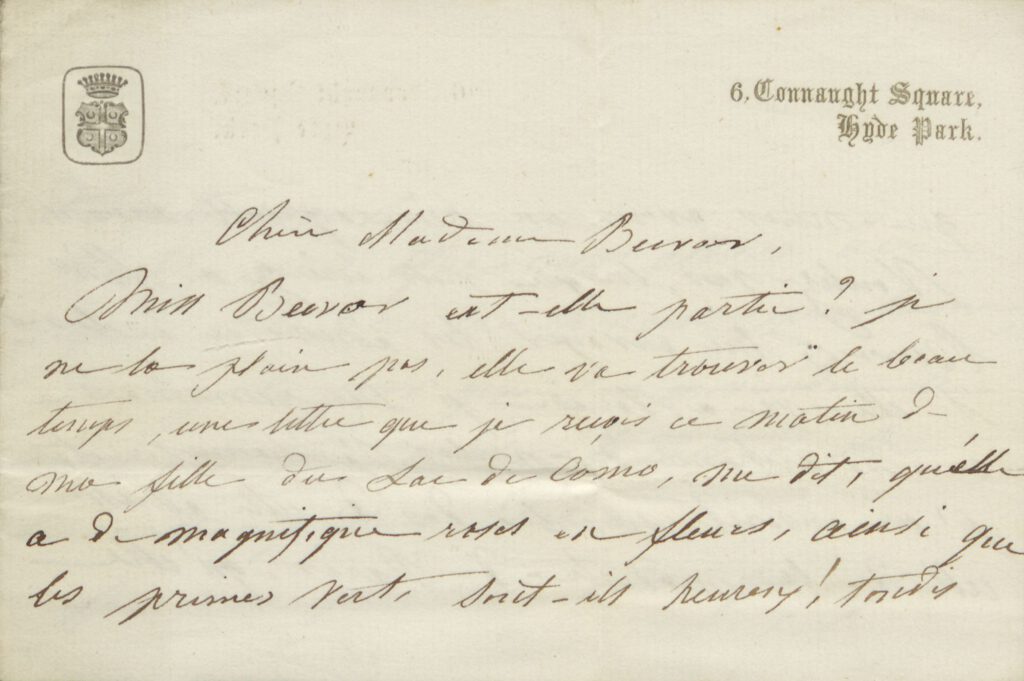 6, Connaught Square,
Hyde Park.
Chère Madame Beevor,
Miss Beevor est-elle partie? je
ne la plain pas, elle va trouver le beau
temps, une lettre que je reçois ce matin de
ma fille du Lac de Como, me dit, qu'elle
a de magnifique roses en fleurs, ainsi que
les primes vert, sont-ils heureux! tandis